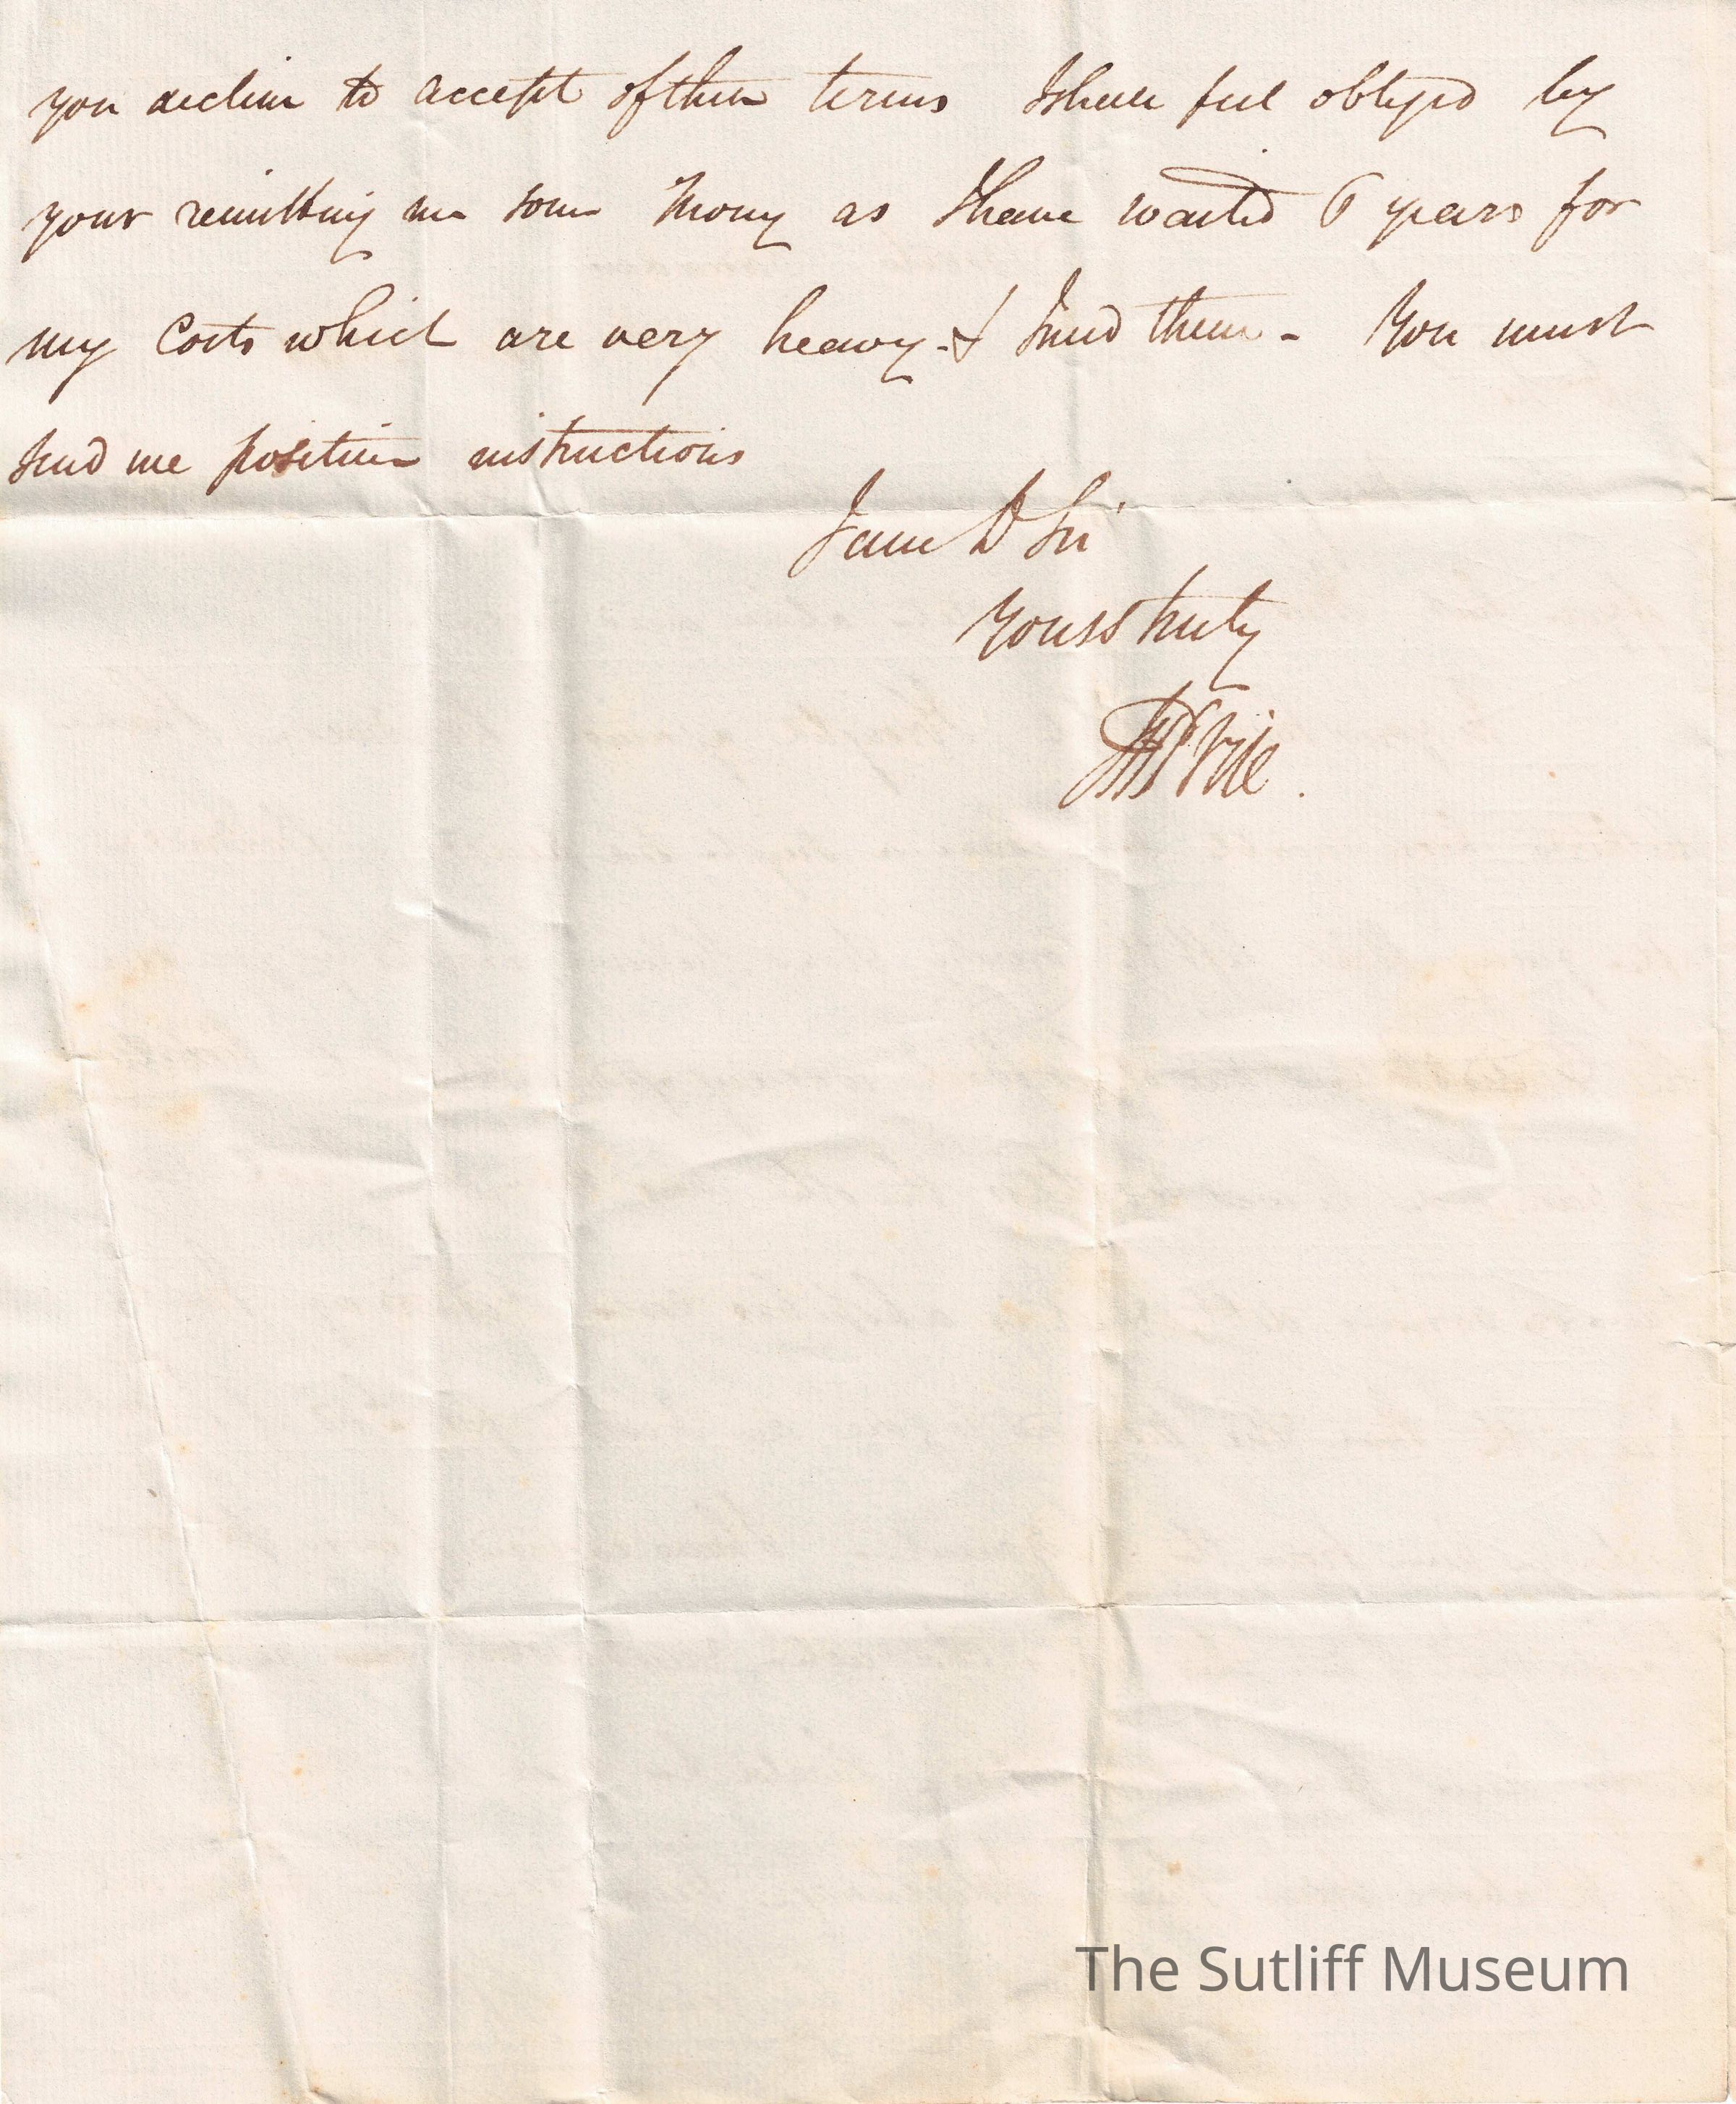 you decline to accept of these terms I shall feel obliged by
your remitting me some Money as I have waited 6 years for
my Costs which are very heavy - & I need them - You must
send me positive instructions
I am D Sir
Yours truly
The Sutliff Museum